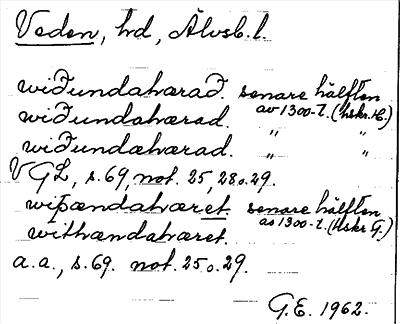 Veden, hd, Älvsb.l.
wiðundahærað. senare hälften
wiðundahærad. av 1300-t. (hskr. H.)
wiðundæhærad. " "
VGL, s. 69, not. 25, 28 o. 29.
wiþændahæret. senare hälften
withændahæret. av 1300-t. (Hskr G.)
a.a., s. 69. not. 25 o. 29.
G.E. 1962.